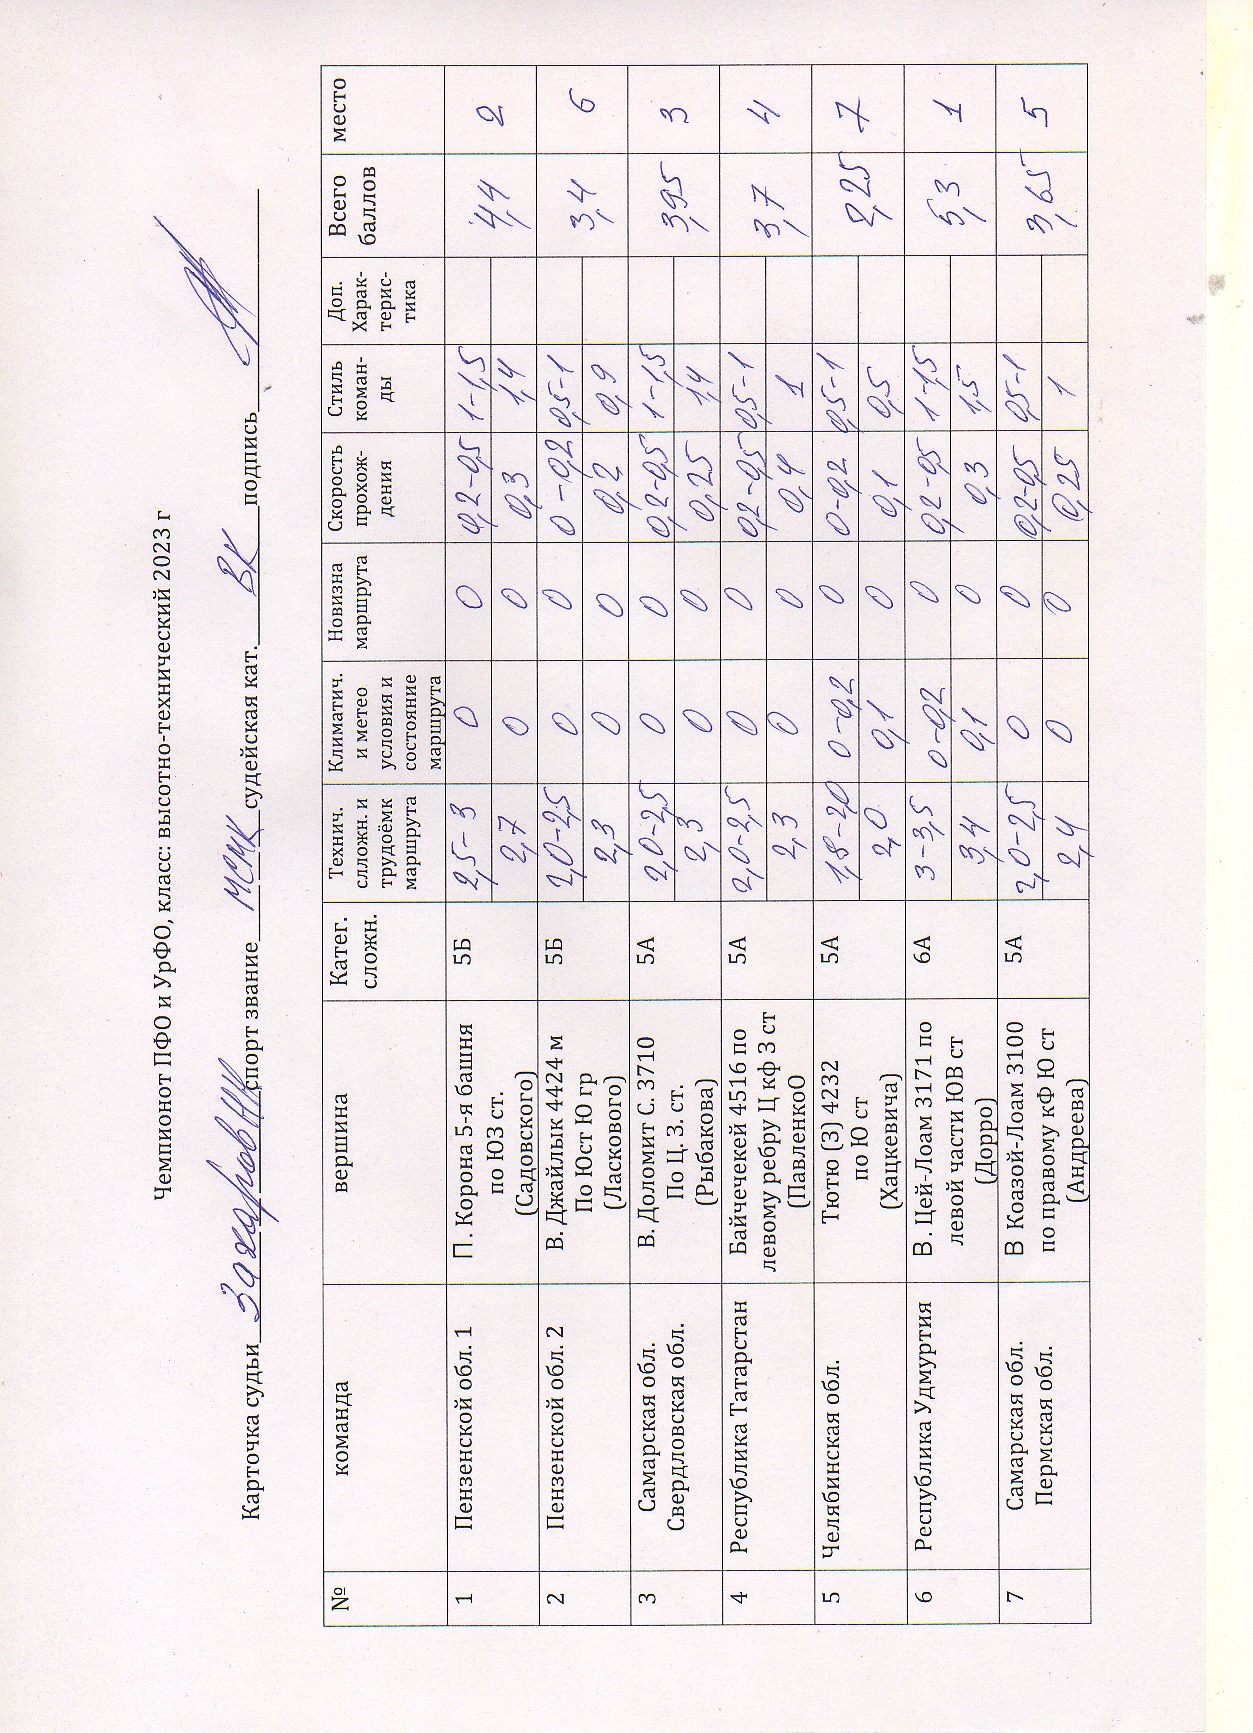 Чемпионот ПФО и УрФО, класс: высотно-технический 2023 г
Карточка судьи Захаров Н.К. спорт звание МСМК судейская кат. ВК подпись
№ команда вершина Катег. сложн. Технич. слложн. и трудоёмк маршрута Климатич. и метео условия и состояние маршрута Новизна маршрута Скорость прохож-дения Стиль коман-ды Доп. Харак-терис-тика Всего баллов место
1 Пензенской обл. 1 П. Корона 5-я башня 5Б 2,5-3 0 0 0,2-0,5 1-1,5 4,4 2
по ЮЗ ст. 2,7 0 0 0,3 1,4
(Садовского)
2 Пензенской обл. 2 В. Джайлык 4424 м 5Б 2,0-2,5 0 0 0-0,2 0,5-1 3,4 6
По Юст Ю гр 2,3 0 0 0,2 0,9
(Ласкового)
3 Самарская обл. В. Доломит С. 3710 5А 2,0-2,5 0 0 0,2-0,5 1-1,5 3,95 3
Свердловская обл. По Ц. З. ст. 2,3 0 0 0,25 1,4
(Рыбакова)
4 Республика Татарстан Байчечекей 4516 по 5А 2,0-2,5 0 0 0,2-0,5 0,5-1 3,7 4
левому ребру Ц кф З ст 2,3 0 0 0,4 1
(ПавленкоО
5 Челябинская обл. Тютю (З) 4232 5А 1,8-2,0 0-0,2 0 0-0,2 0,5-1 2,25 7
по Ю ст 2,0 0,1 0 0,1 0,5
(Хацкевича)
6 Республика Удмуртия В. Цей-Лоам 3171 по 6А 3-3,5 0-0,2 0 0,2-0,5 1-1,5 5,3 1
левой части ЮВ ст 3,4 0,1 0 0,3 1,5
(Дорро)
7 Самарская обл. В Коазой-Лоам 3100 5А 2,0-2,5 0 0 0,2-0,5 0,5-1 3,65 5
Пермская обл. по правому кФ Ю ст 2,4 0 0 0,25 1
(Андреева)